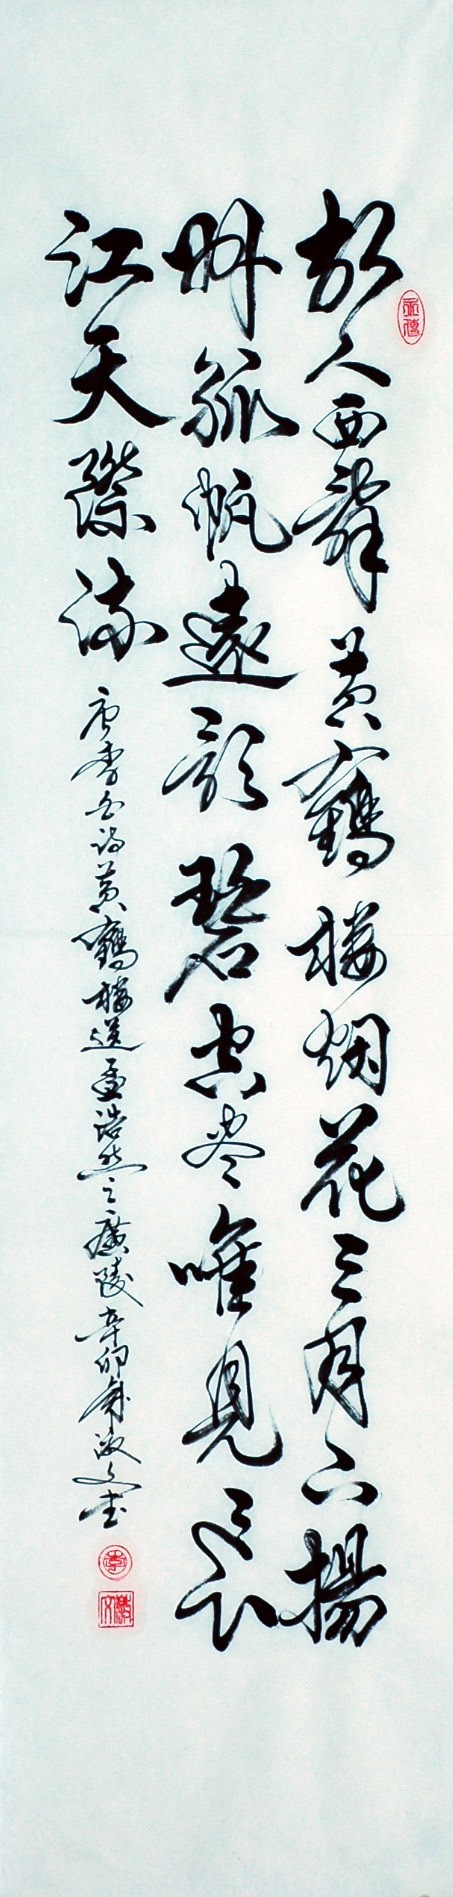 故人西辭黄鶴樓烟花三月下揚
州孤帆遠影碧空盡唯見長
江天際流
唐李白詩黄鶴樓送孟浩然之廣陵辛卯年淑文書